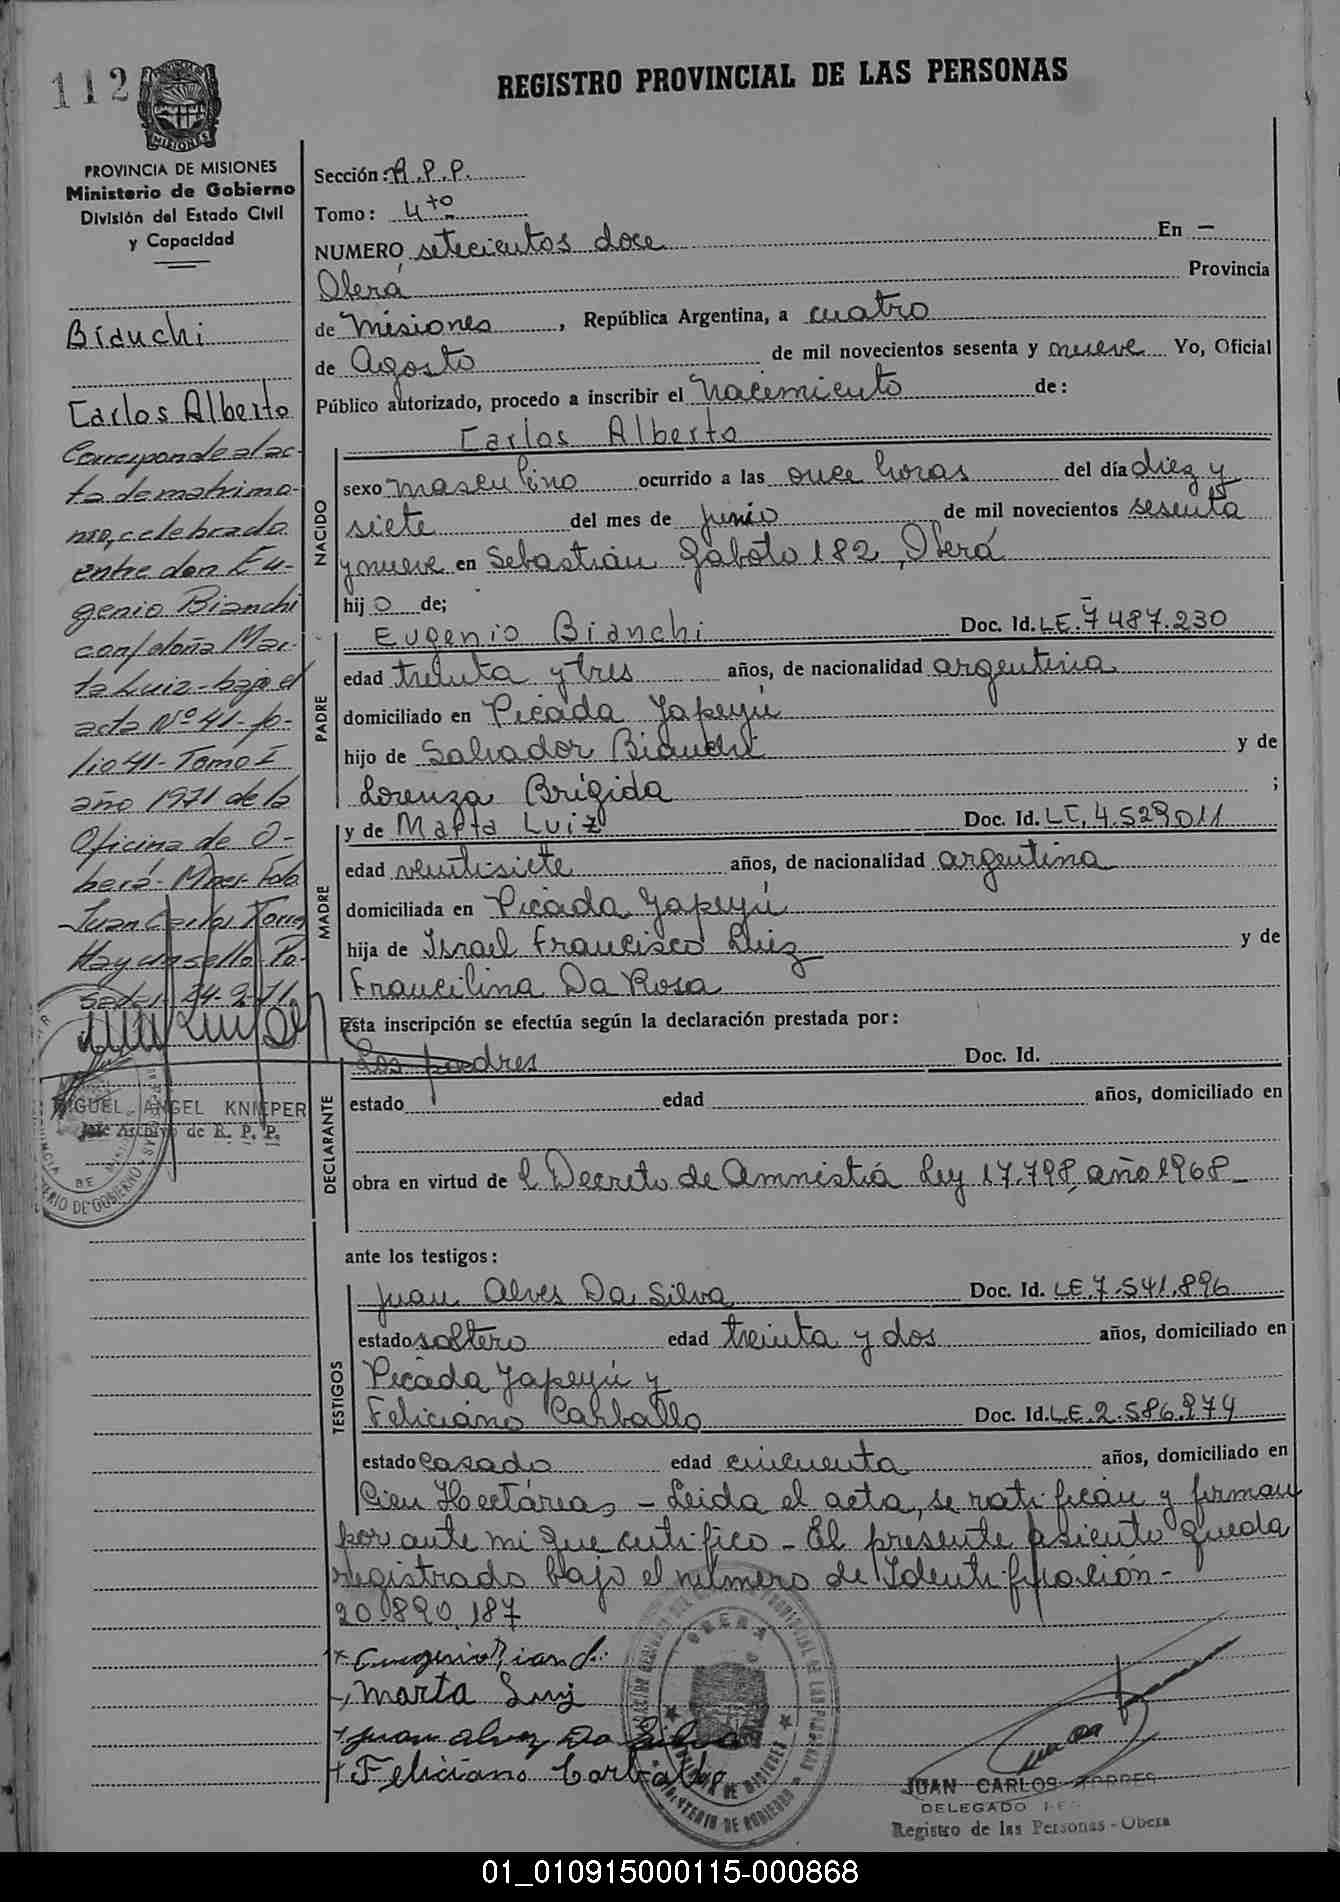 112
REGISTRO PROVINCIAL DE LAS PERSONAS
PROVINCIA DE MISIONES
Ministerio de Gobierno
División del Estado Civil
y Capacidad
Bianchi
Carlos Alberto
Corresponde al ac-
ta de matrimo-
nio, celebrado
entre don Eu-
genio Bianchi
con doña Mar-
ta Luiz - bajo el
acta Nº 41 - fo-
lio 41 - Tomo I
año 1971 de la
Oficina de O-
berá -
Juan Carlos Torres
Hay un sello - Po-
sadas, 24-2-71
MIGUEL ANGEL KNIEPER
Jefe Archivo de R. P. P.
Sección: R.P.P.
Tomo: 4to
NUMERO setecientos doce En —
Oberá Provincia
de Misiones, República Argentina, a cuatro
de Agosto de mil novecientos sesenta y nueve Yo, Oficial
Público autorizado, procedo a inscribir el nacimiento de:
Carlos Alberto
NACIDO
sexo masculino ocurrido a las once horas del día diez y
siete del mes de junio de mil novecientos sesenta
y nueve en Sebastián Gaboto 182, Oberá
hijo de;
PADRE
Eugenio Bianchi Doc. Id. LE. 7487.230
edad treinta y tres años, de nacionalidad argentina
domiciliado en Picada Yapeyú
hijo de Salvador Bianchi y de
Lorenza Brígida ;
MADRE
y de Marta Luiz Doc. Id. LC, 4.529011
edad veintisiete años, de nacionalidad argentina
domiciliada en Picada Yapeyú
hija de Israel Francisco Luiz y de
Francilina Da Rosa
Esta inscripción se efectúa según la declaración prestada por:
DECLARANTE
Los padres Doc. Id.
estado edad años, domiciliado en
obra en virtud de l Decreto de Amnistiá Ley 17.798, año 1968
ante los testigos:
TESTIGOS
Juan Alves Da Silva Doc. Id. LE.7.541.896
estado soltero edad treinta y dos años, domiciliado en
Picada Yapeyú y
Feliciano Carballo Doc. Id. LE.2.586.974
estado casado edad cincuenta años, domiciliado en
Cien Hectáreas, - Leida el acta, se ratifican y firman
por ante mi que certifico - El presente asiento queda
registrado bajo el número de Identificación -
20.890.187
Eugenio Bianchi
Marta Luiz
Juan Alvez Da Silva
Feliciano Carballo
OBERA
JUAN CARLOS TORRES
DELEGADO
Registro de las Personas - Obera
01_010915000115-000868